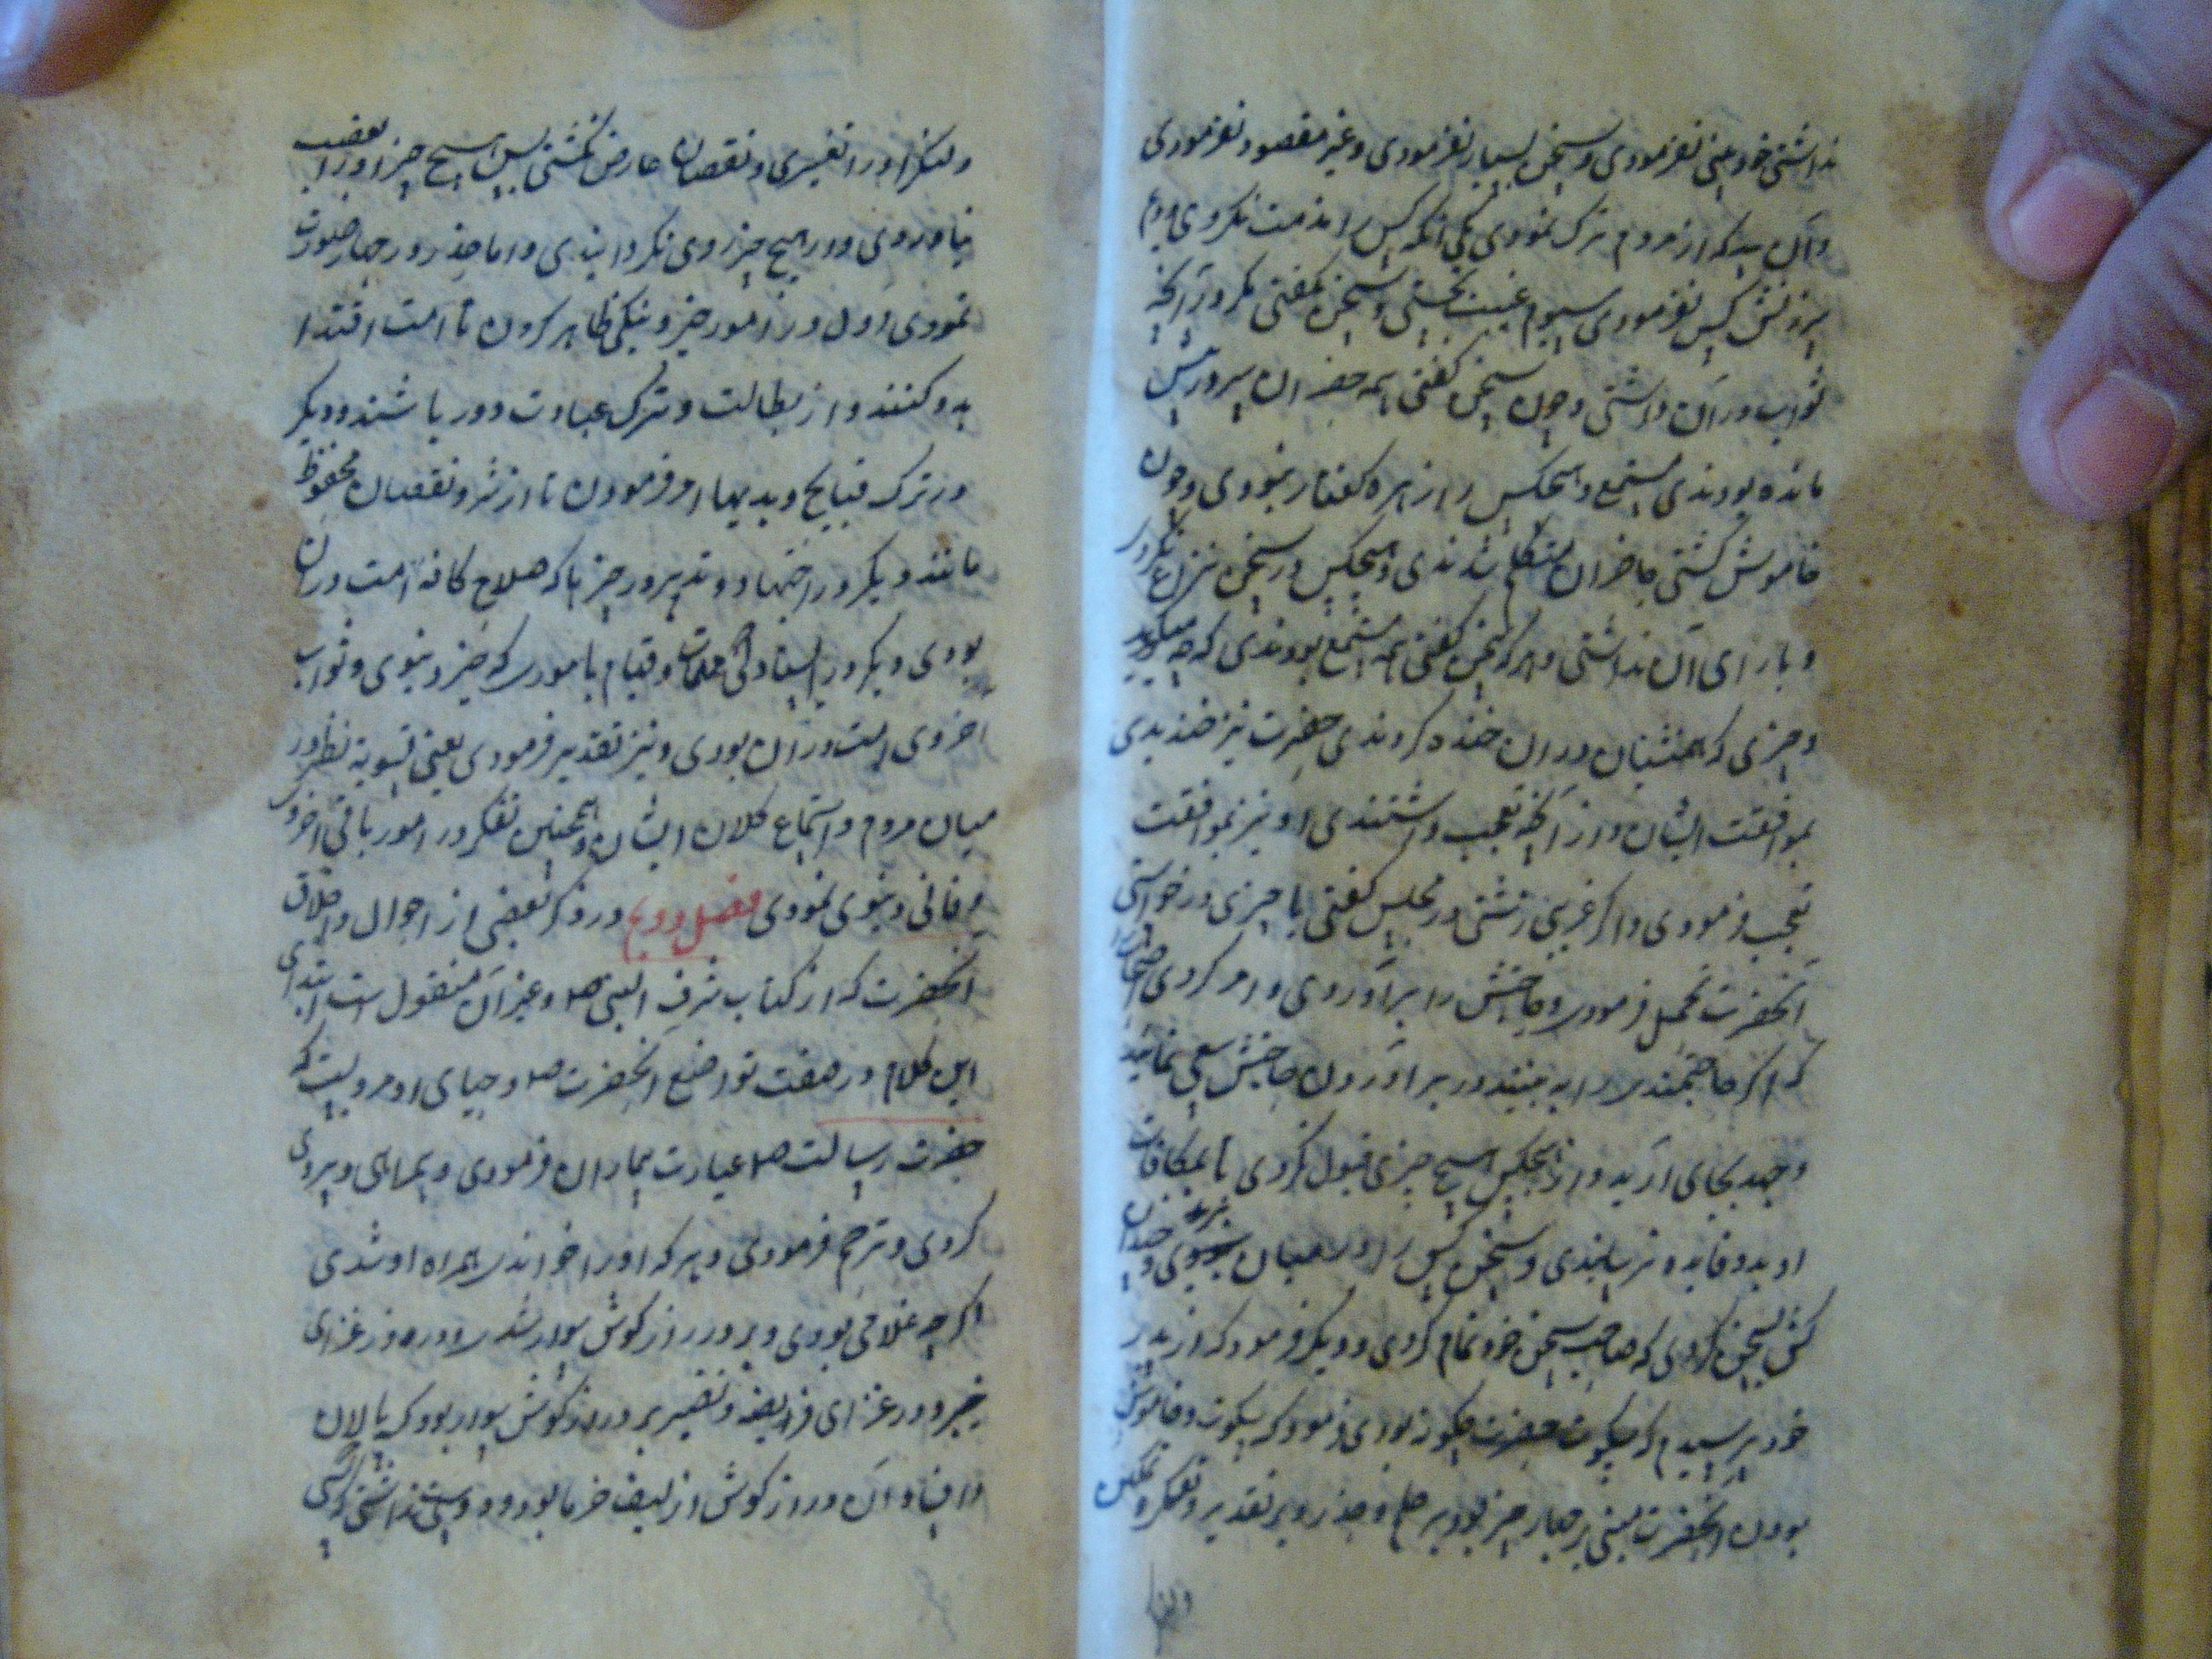 نداشتی خود بینی نفرمودی و سخن بسیار نفرمودی و غیر مقصود نفرمودی
و آن سه که از مردم ترک نمودی یکی آنکه کس را مذمت نکردی دوم
سرزنش کس نفرمودی سیوم غیبت نجستی و سخن نگفتی مگر در آنچه
ثواب در آن داشتی و چون سخن گفتی همه حضران سر در پیش
مانده بودندی مستمع و هیچکس را زهره گفتار نبودی و چون
خاموش گشتی حاضران متکلم شدندی و هیچکس در سخن نزاع نکردی
و یارای آن نداشتی و هر که سخن گفتی همه مستمع بودندی که چه میگوید
و چیزی که همنشینان در آن خنده کردندی حضرت نیز خندیدی
بموافقت ایشان و از آنچه تعجب داشتندی او نیز بموافقت
تعجب فرمودی و اگر غریبی زشتی در مجلس گفتی یا چیزی درخواستی
آنحضرت تحمل فرمودی و حاجتش را برآوردی و امر کردی اصحاب را
که اگر حاجتمندی را به بینند در برآوردن حاجتش سعی نمایند
و جهد بجای آرید و از هیچکس هیچ چیزی قبول نکردی تا بمکافات
او بدو فایده نرسانیدی و سخن کس را در میان نبریدی و چندان
کش سخن کردی که صاحب سخن خود تمام کردی و دیگر فرمود که از پدر
خود پرسیدم که سکوت حضرت چگونه بودی فرمود که سکوت و خاموش
بودن آنحضرت مبنی بر چهار چیز بود بر حلم و حذر و بر تقدیر و تفکر
ولیکن او را تغییری و نقصان عارض نگشتی پس هیچ چیز او را بغضب
نیاوردی و در هیچ چیز روی نگردانیدی و اما حذر در چهار صورت
نمودی اول در امور خیر و نیکی ظاهر کردن تا امت اقتدا
بدو کنند و از بطالت و ترک عبادت دور باشند و دیگر
در ترک قبایح و بدیها امر فرمودن تا از شر و نقصان محفوظ
مانند دیگر در اجتهاد و تدبیر در چیزها که صلاح کافه امت در آن
بودی دیگر در ایستادگی و قیام باموری که خیر دنیوی و ثواب
اخروی امت در آن بودی و نیز تقدیر فرمودی یعنی تسویه نظر در
میان مردم و استماع کلان ایشان و همچنین تفکر در امور باقی اخروی
و فانی دنیوی نمودی فصل دوم در ذکر بعضی از احوال و اخلاق
آنحضرت که از کتاب شرف النبی ص و غیر آن منقول است ابتدای
این کلام در صفت تواضع آنحضرت ص و حیای او مرویست که
حضرت رسالت ص عیادت بیماران فرمودی و
کردی و ترحم فرمودی و هر که او را خواندی همراه او شدی
اگر چه غلامی بودی و بر دراز کوش سوار شدی و در روز غزای
خیبر و در غزای قریظه و نضیر بر دراز کوش سوار بود که پالان
و آن دراز کوش از لیف خرما بود و دوست نداشتی که کسی